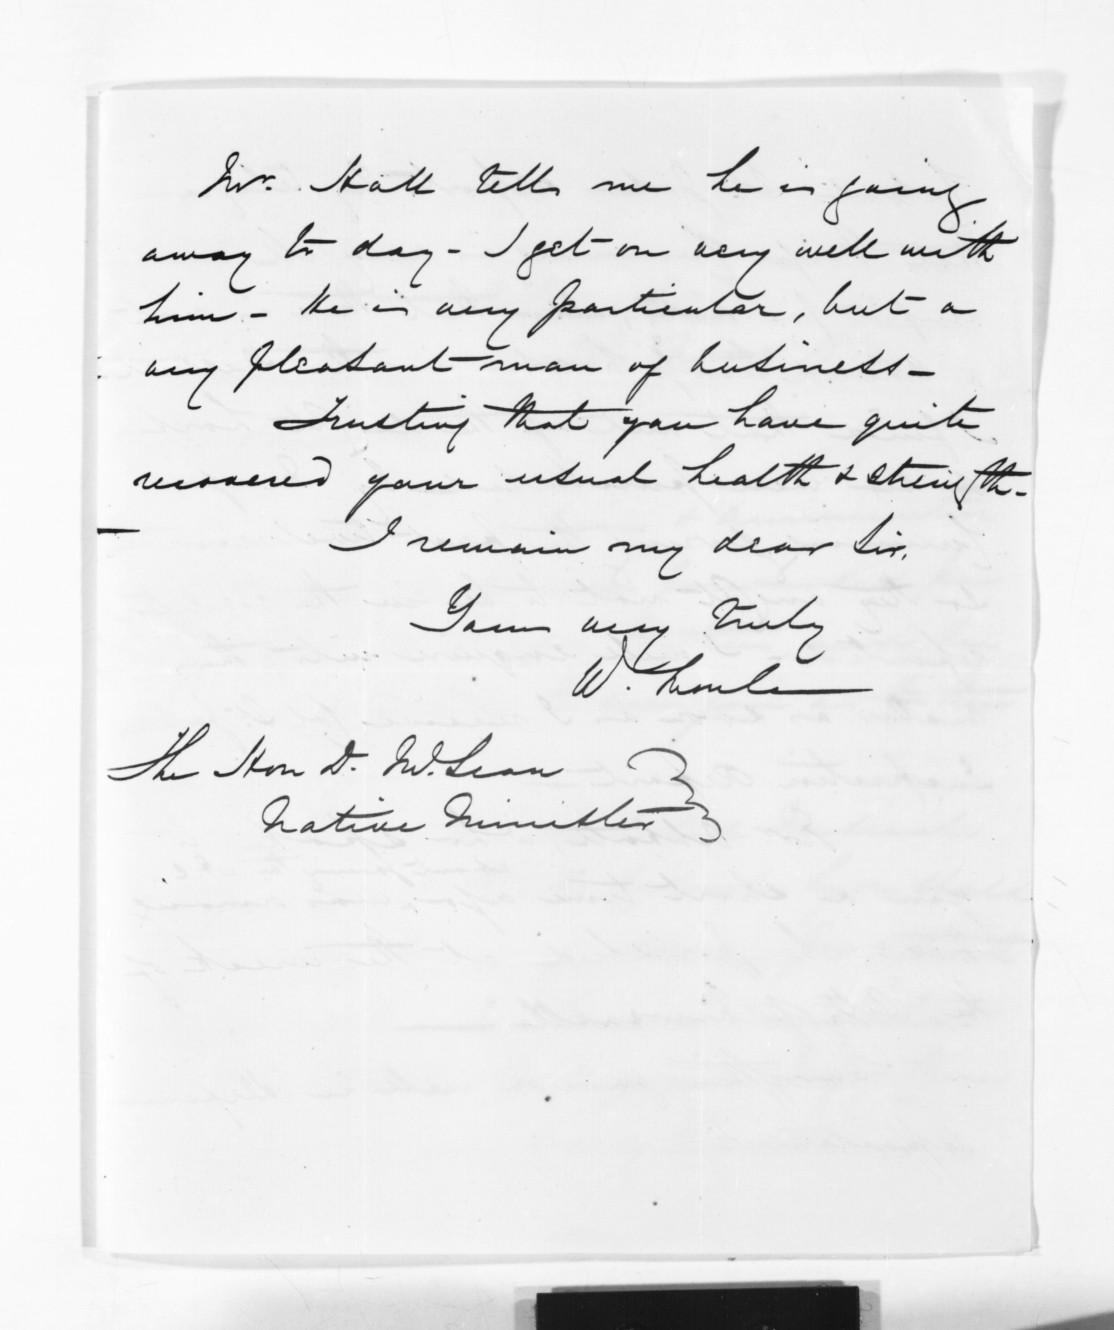 Mr. Hall tells me he is going
away to day - I get on very well with
him - He is very particular, but a
very pleasant man of business -
Trusting that you have quite
recovered your usual health & strength -
I remain my dear Sir,
Yours very truly
W.
The Hon D. McLean
Native Minister